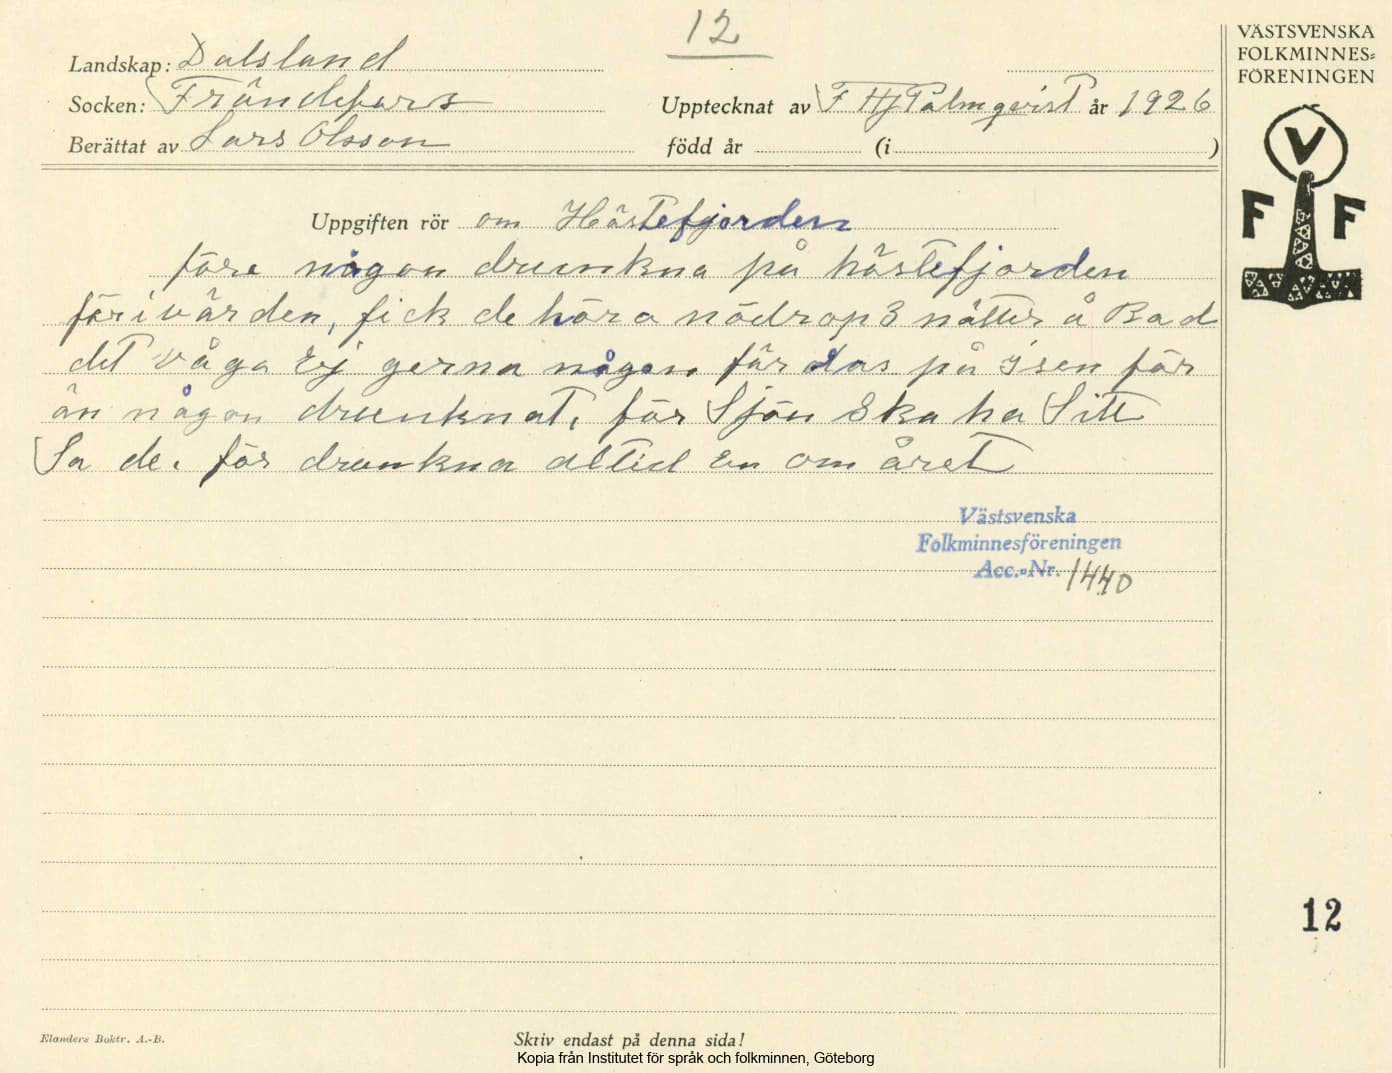 12
VÄSTSVENSKA
FOLKMINNES=
FÖRENINGEN
Landskap: Dalsland
Socken: Frändefors
Upptecknat av F Hj Palmqvist år 1926
Berättat av Lars Olsson
född år (i )
V
F F
Uppgiften rör om Hästefjorden
före någon drunkna på hästefjorden
förivärden, fick de höra nödrop 3 nätter å Rad
det våga Ej gerna någon färdas på Isen för
än någon drunknat, för Sjön Ska ha Sitt
Sa de. för drunkna alltid En om året
Västsvenska
Folkminnesföreningen
Acc.-Nr. 1440
12
Elanders Boktr. A.-B.
Skriv endast på denna sida!
Kopia från Institutet för språk och folkminnen, Göteborg